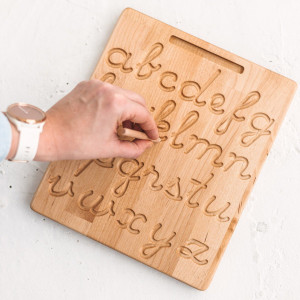 abcdefg
klmn
qrstu
vwxyz